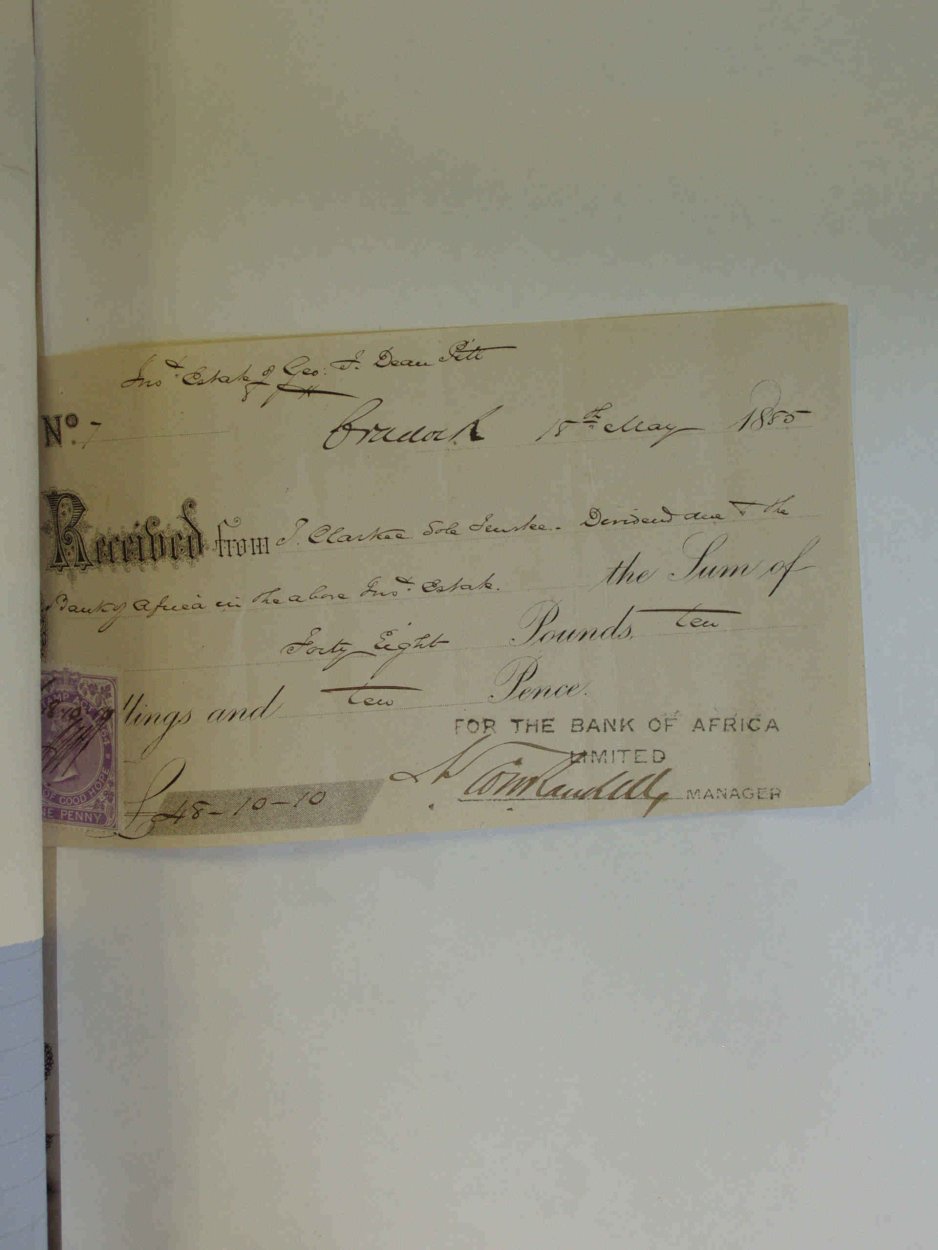 Inst. Estate of Geo: F. Dean Pitt
No. 7
Cradock 18th May 1885
Received from J. Clarke Sole Trustee. Dividend due to the
Bank of Africa in the above Inst. Estate. the Sum of
Forty Eight Pounds, ten
llings and ten Pence.
FOR THE BANK OF AFRICA
LIMITED
MANAGER
£48-10-10
OF GOOD HOPE
NE PENNY